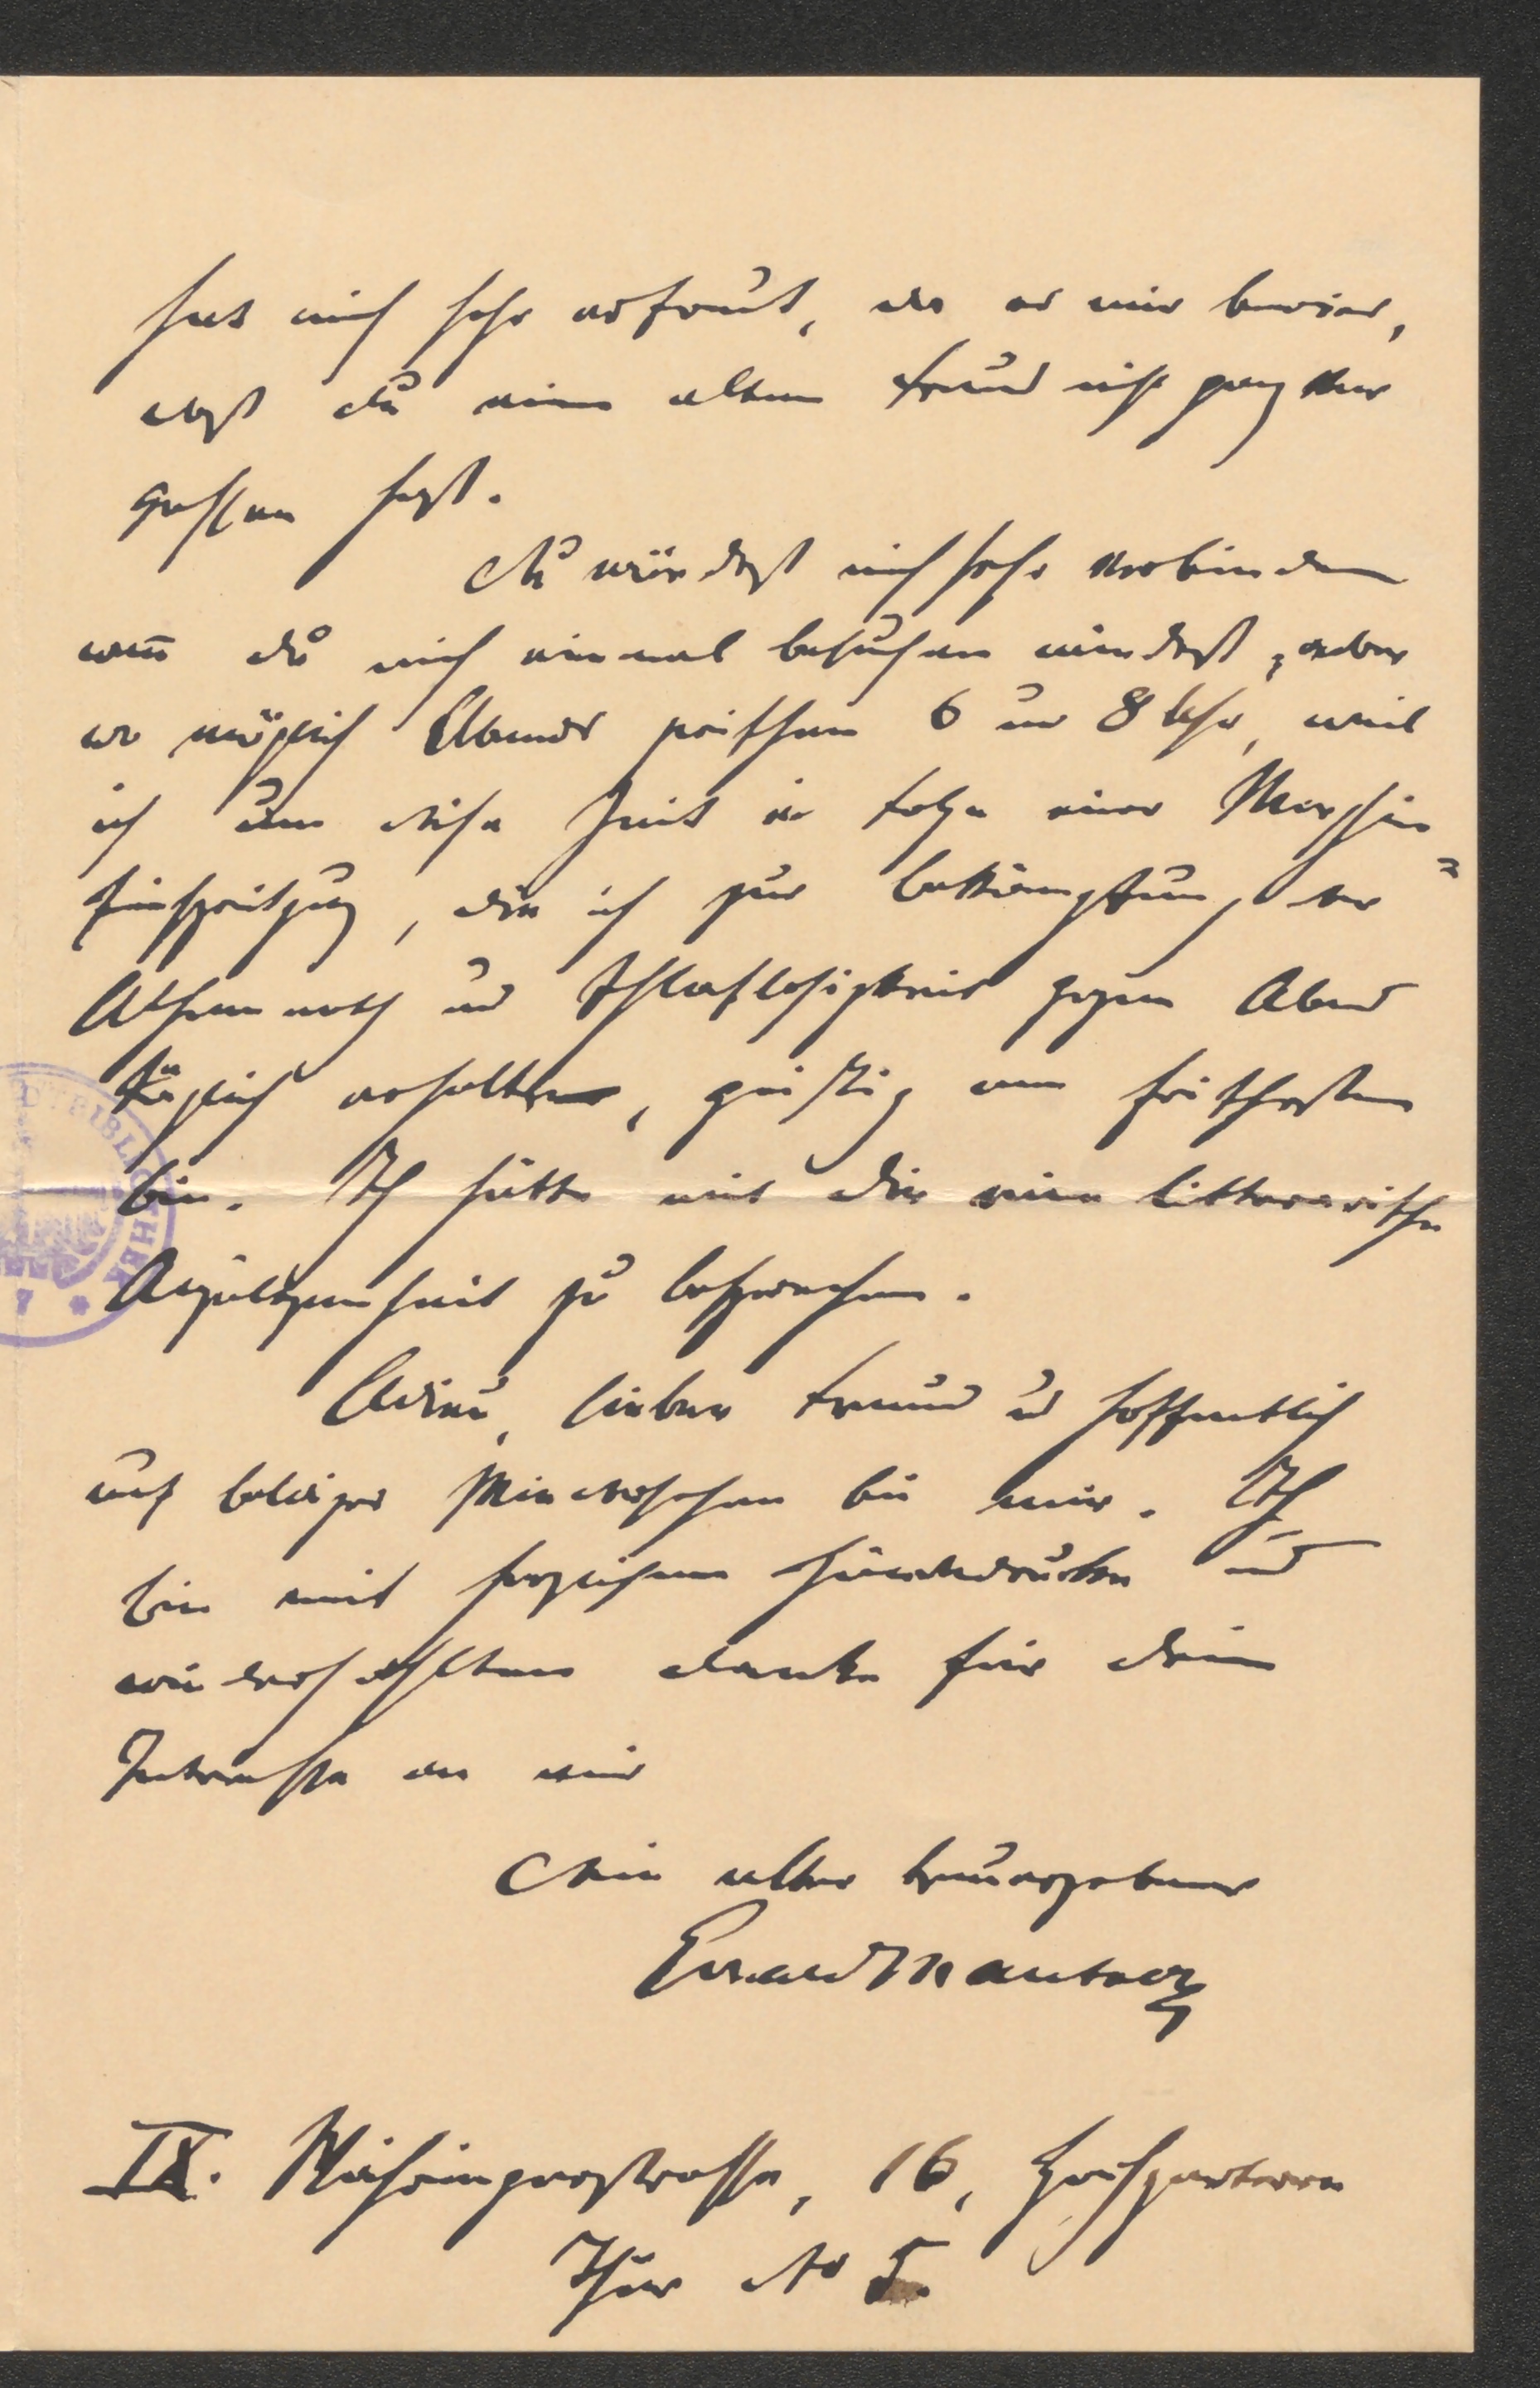 hat mich sehr erfreut, da er mir bewies,
daß du einen alten Freund nicht ganz ver
gessen hast.
Du würdest mich sehr verbinden
wen̄ du mich einmal besuchen würdest, aber
wo möglich Abends zwischen 6 und 8 Uhr, weil
ich um diese Zeit in Folge einer Morphin
Einspritzung, die ich zur Bekämpfung der
Athemnoth und Schlaflosigkeit gegen Abend
täglich erhalte, geistig am frischesten
bin. Ich hätte mit dir eine litterarische
Angelegenheit zu besprechen.
Adieu, lieber Freund und hoffentlich
auf baldiges Wiedersehen bei mir. Ich
bin mit herzlichem Händedrucke und
wiederholtem Danke für dein
Interesse an mir
Dein alter treuergebener
Eduard Mautner
IX. Währingerstrasse, 16, Hochparterre
Thür No 5.